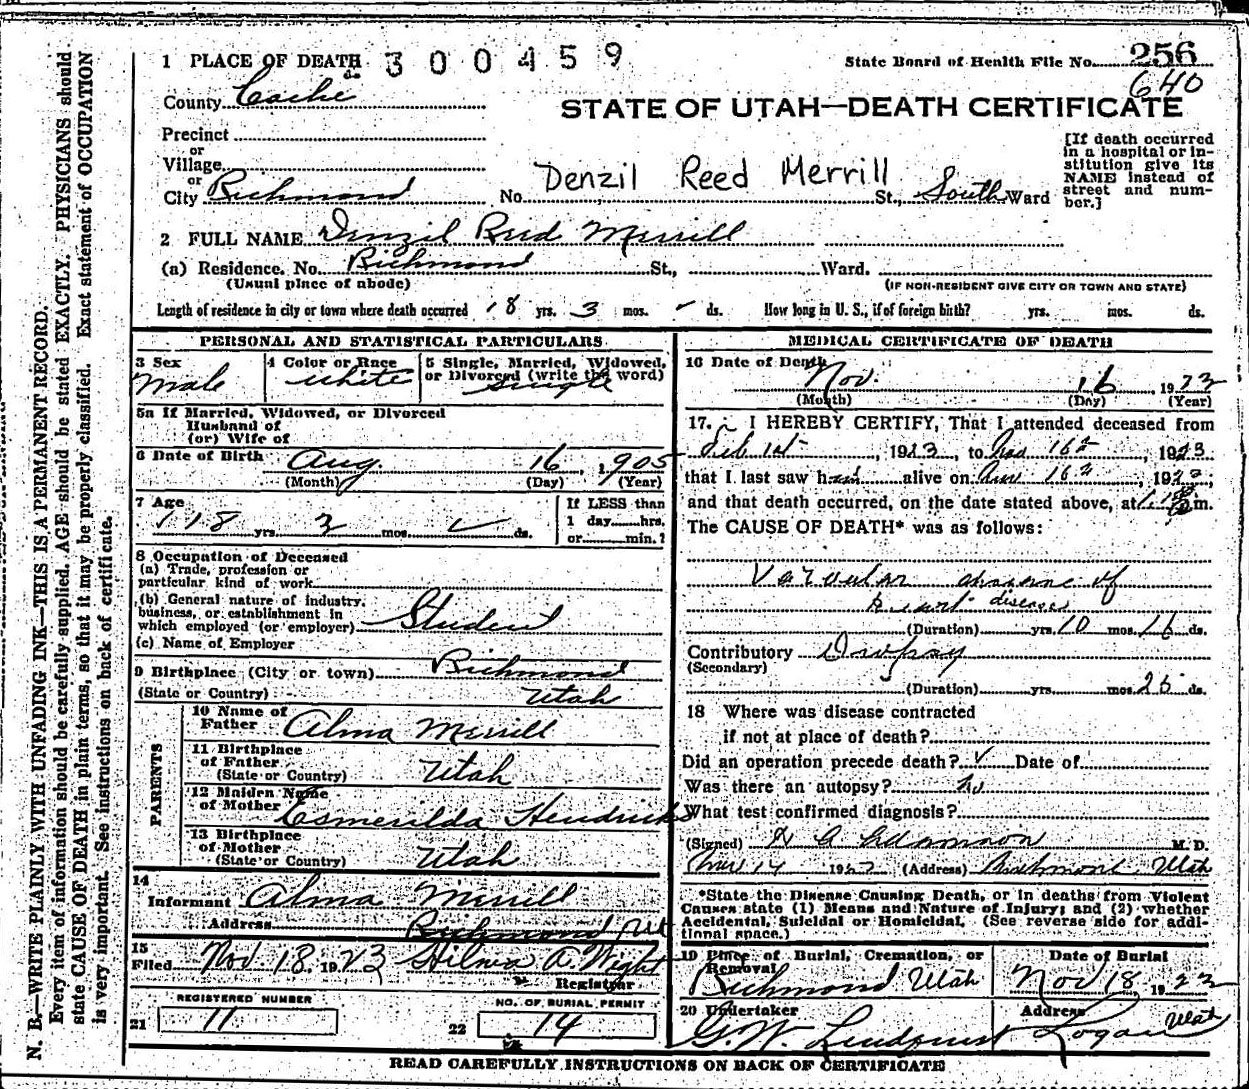 1 PLACE OF DEATH 300459
State Board of Health File No. 256
640
County Cache
STATE OF UTAH—DEATH CERTIFICATE
Precinct
or
Village
or
City Richmond No. Denzil Reed Merrill St., South Ward
[If death occurred
in a hospital or in-
stitution give its
NAME instead of
street and num-
ber.]
2 FULL NAME Denzil Reed Merrill
(a) Residence. No. Richmond St., Ward.
(Usual place of abode) (IF NON-RESIDENT GIVE CITY OR TOWN AND STATE)
Length of residence in city or town where death occurred 18 yrs. 3 mos. - ds. How long in U. S., if of foreign birth? yrs. mos. ds.
PERSONAL AND STATISTICAL PARTICULARS
3 Sex
male
4 Color or Race
white
5 Single, Married, Widowed,
or Divorced (write the word)
single
5a If Married, Widowed, or Divorced
Husband of
(or) Wife of
6 Date of Birth Aug. 16, 1905
(Month) (Day) (Year)
7 Age
18 yrs. 3 mos. ds.
If LESS than
1 day hrs.
or min.?
8 Occupation of Deceased
(a) Trade, profession or
particular kind of work
(b) General nature of industry,
business, or establishment in
which employed (or employer) Student
(c) Name of Employer
9 Birthplace (City or town) Richmond
(State or Country) Utah
PARENTS
10 Name of
Father Alma Merrill
11 Birthplace
of Father
(State or Country) Utah
12 Maiden Name
of Mother Esmerilda Hendricks
13 Birthplace
of Mother
(State or Country) Utah
14
Informant Alma Merrill
Address Richmond Ut
15
Filed Nov 18, 1923 Hilma A. Wight
Registrar
REGISTERED NUMBER
21 11
NO. OF BURIAL PERMIT
22 14
MEDICAL CERTIFICATE OF DEATH
16 Date of Death
Nov. 16 1923
(Month) (Day) (Year)
17. I HEREBY CERTIFY, That I attended deceased from
Feb 1st, 1923, to Nov 16th, 1923
that I last saw him alive on Nov 16th, 1923;
and that death occurred, on the date stated above, at m.
The CAUSE OF DEATH* was as follows:
Valvular disease of
heart disease
(Duration) yrs. 10 mos. 16 ds.
Contributory Dropsy
(Secondary)
(Duration) yrs. mos. 25 ds.
18 Where was disease contracted
if not at place of death?
Did an operation precede death? ✓ Date of
Was there an autopsy? no
What test confirmed diagnosis?
(Signed) Adamson M. D.
Nov 192 (Address) Richmond, Utah
*State the Disease Causing Death, or in deaths from Violent
Causes state (1) Means and Nature of Injury; and (2) whether
Accidental, Suicidal or Homicidal. (See reverse side for addi-
tional space.)
19 Place of Burial, Cremation, or
Removal
Richmond Utah
Date of Burial
Nov 18 1923
20 Undertaker
G. W. Lindquist
Address
Logan Utah
READ CAREFULLY INSTRUCTIONS ON BACK OF CERTIFICATE
N. B.—WRITE PLAINLY WITH UNFADING INK—THIS IS A PERMANENT RECORD.
Every item of information should be carefully supplied. AGE should be stated EXACTLY. PHYSICIANS should
state CAUSE OF DEATH in plain terms, so that it may be properly classified. Exact statement of OCCUPATION
is very important. See instructions on back of certificate.